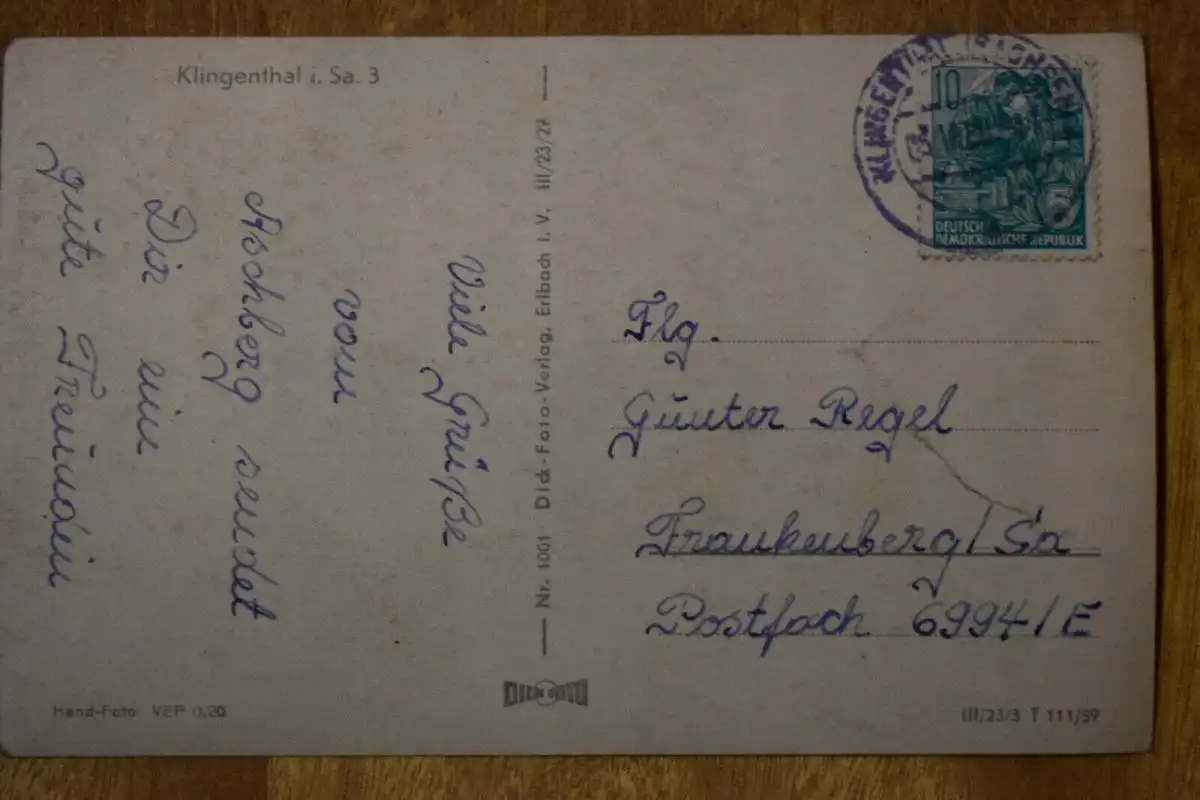 Klingenthal i. Sa. 3
Viele Grüße
vom
Aschberg sendet
Dir ein
gute Freundin
Hand-Foto VEP 0.20
Nr. 1001 Dick-Foto-Verlag, Erlbach i. V. III/23/27
DICK FOTO
KLINGENTHAL (SACHSEN)
10
5
DEUTSCHE
DEMOKRATISCHE REPUBLIK
Flg.
Günter Regel
Frankenberg/Sa
Postfach 6994/E
III/23/3 T 111/59